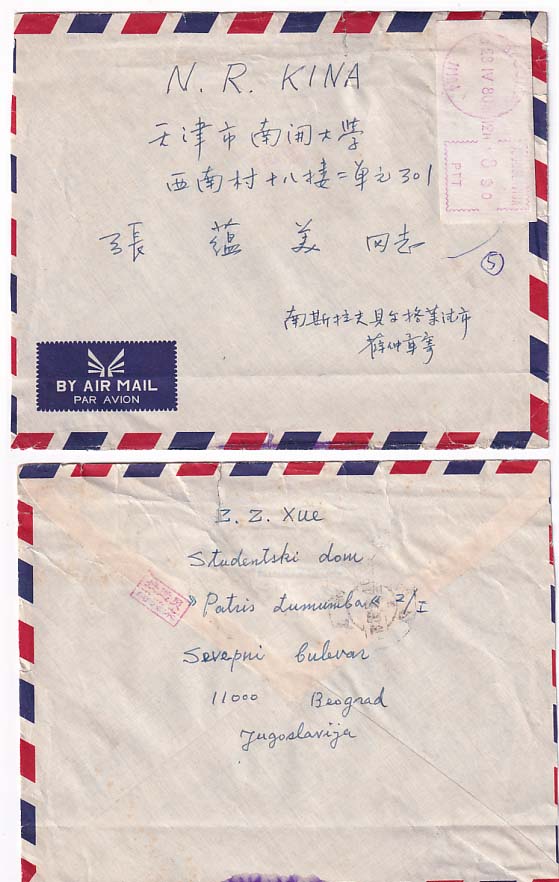 N. R. KINA
天津市南開大學
西南村十八楼二單元301
張 蘊 美 同志
⑤
南斯拉夫貝尔格莱德市
薛仲章寄
BY AIR MAIL
PAR AVION
PTT
Z. Z. Xue
Studentski dom
»Patris Lumumba« 2/I
Severni bulevar
11000 Beograd
Jugoslavija